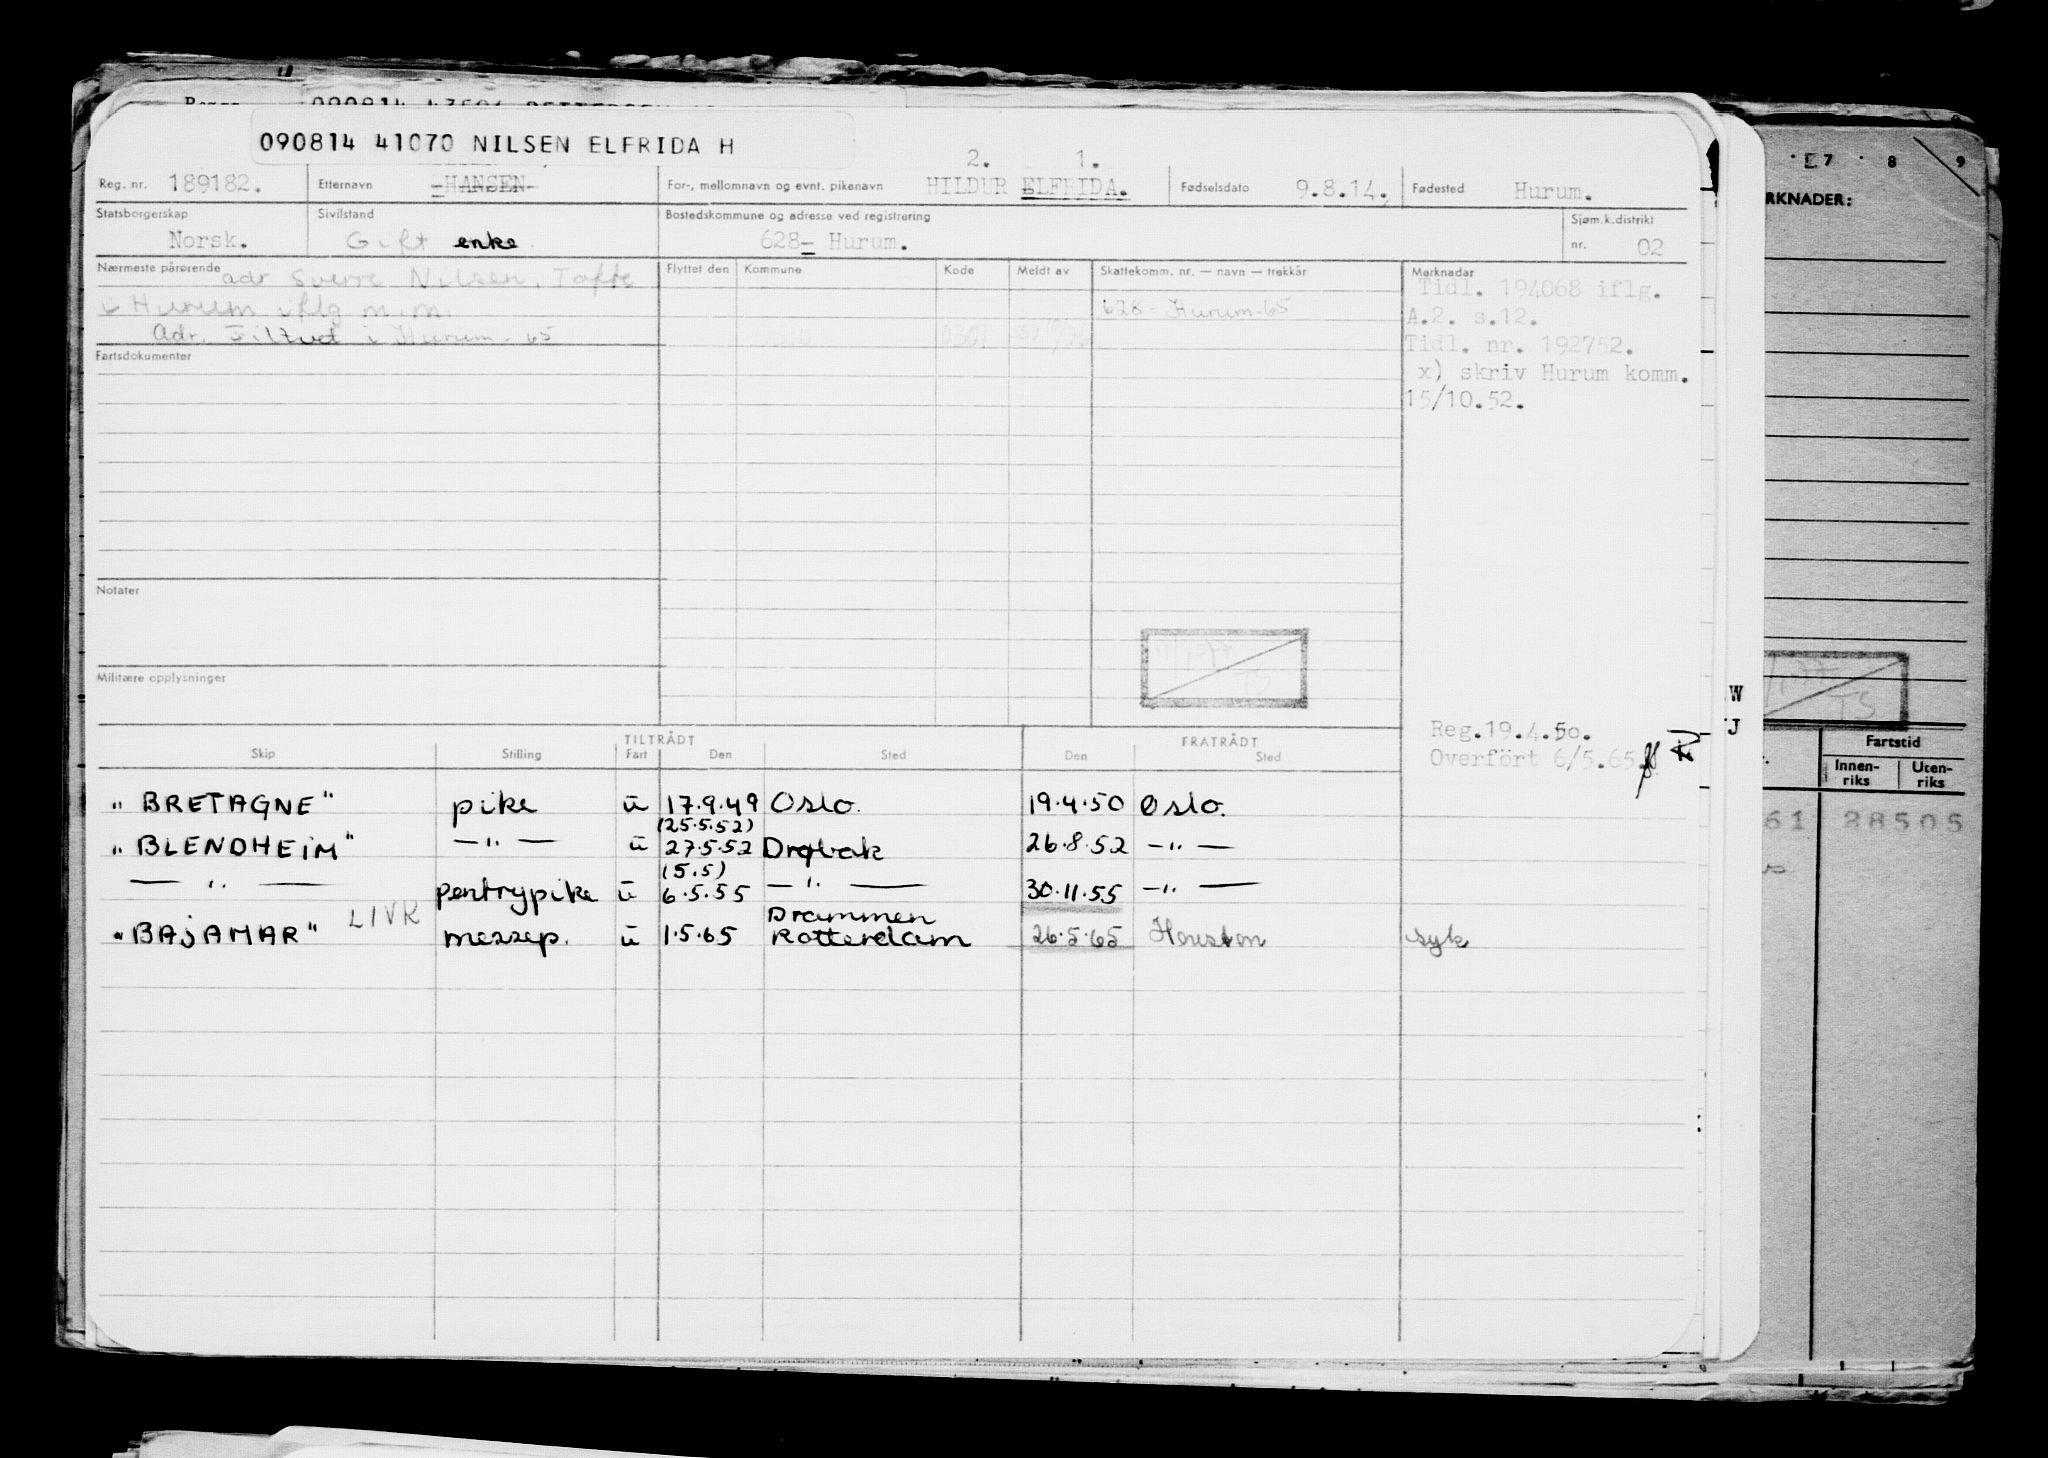 090814 41070 NILSEN ELFRIDA H
2. 1.
Reg. nr. 189182. Etternavn HANSEN For-, mellomnavn og evnt. pikenavn HILDUR ELFRIDA. Fødselsdato 9.8.14. Fødested Hurum.
Statsborgerskap Sivilstand Bostedskommune og adresse ved registrering Sjøm.k.distrikt
Norsk. Gift enke 628- Hurum. nr. 02
Nærmeste pårørende adr Sverre Nilsen, Tofte Flyttet den Kommune Kode Meldt av Skattekomm. nr. — navn — trekkår Merknader
i Hurum iflg m.m. 628 - Hurum - 65
Adr. Filtvet i Hurum - 65 0301
Tidl. 194068 iflg.
A.2. s.12.
Tidl. nr. 192752.
x) skriv Hurum komm.
15/10.52.
Fartsdokumenter
Notater
Militære opplysninger
Reg.19.4.50.
Overfört 6/5.65.
TILTRÅDT FRATRÅDT
Skip Stilling Fart Den Sted Den Sted
"BRETAGNE" pike u 17.9.49 Oslo. 19.4.50 Oslo.
(25.5.52)
"BLENDHEIM" — " — u 27.5.52 Drøbak 26.8.52 — " —
(5.5)
— " — pentrypike u 6.5.55 — " — 30.11.55 — " —
LIVK Drammen
"BAJAMAR" messep. u 1.5.65 Rotterdam 26.5.65 Houston syk
7 8 9
RKNADER:
W
J
Fartstid
Innen-riks Uten-riks
61 28505